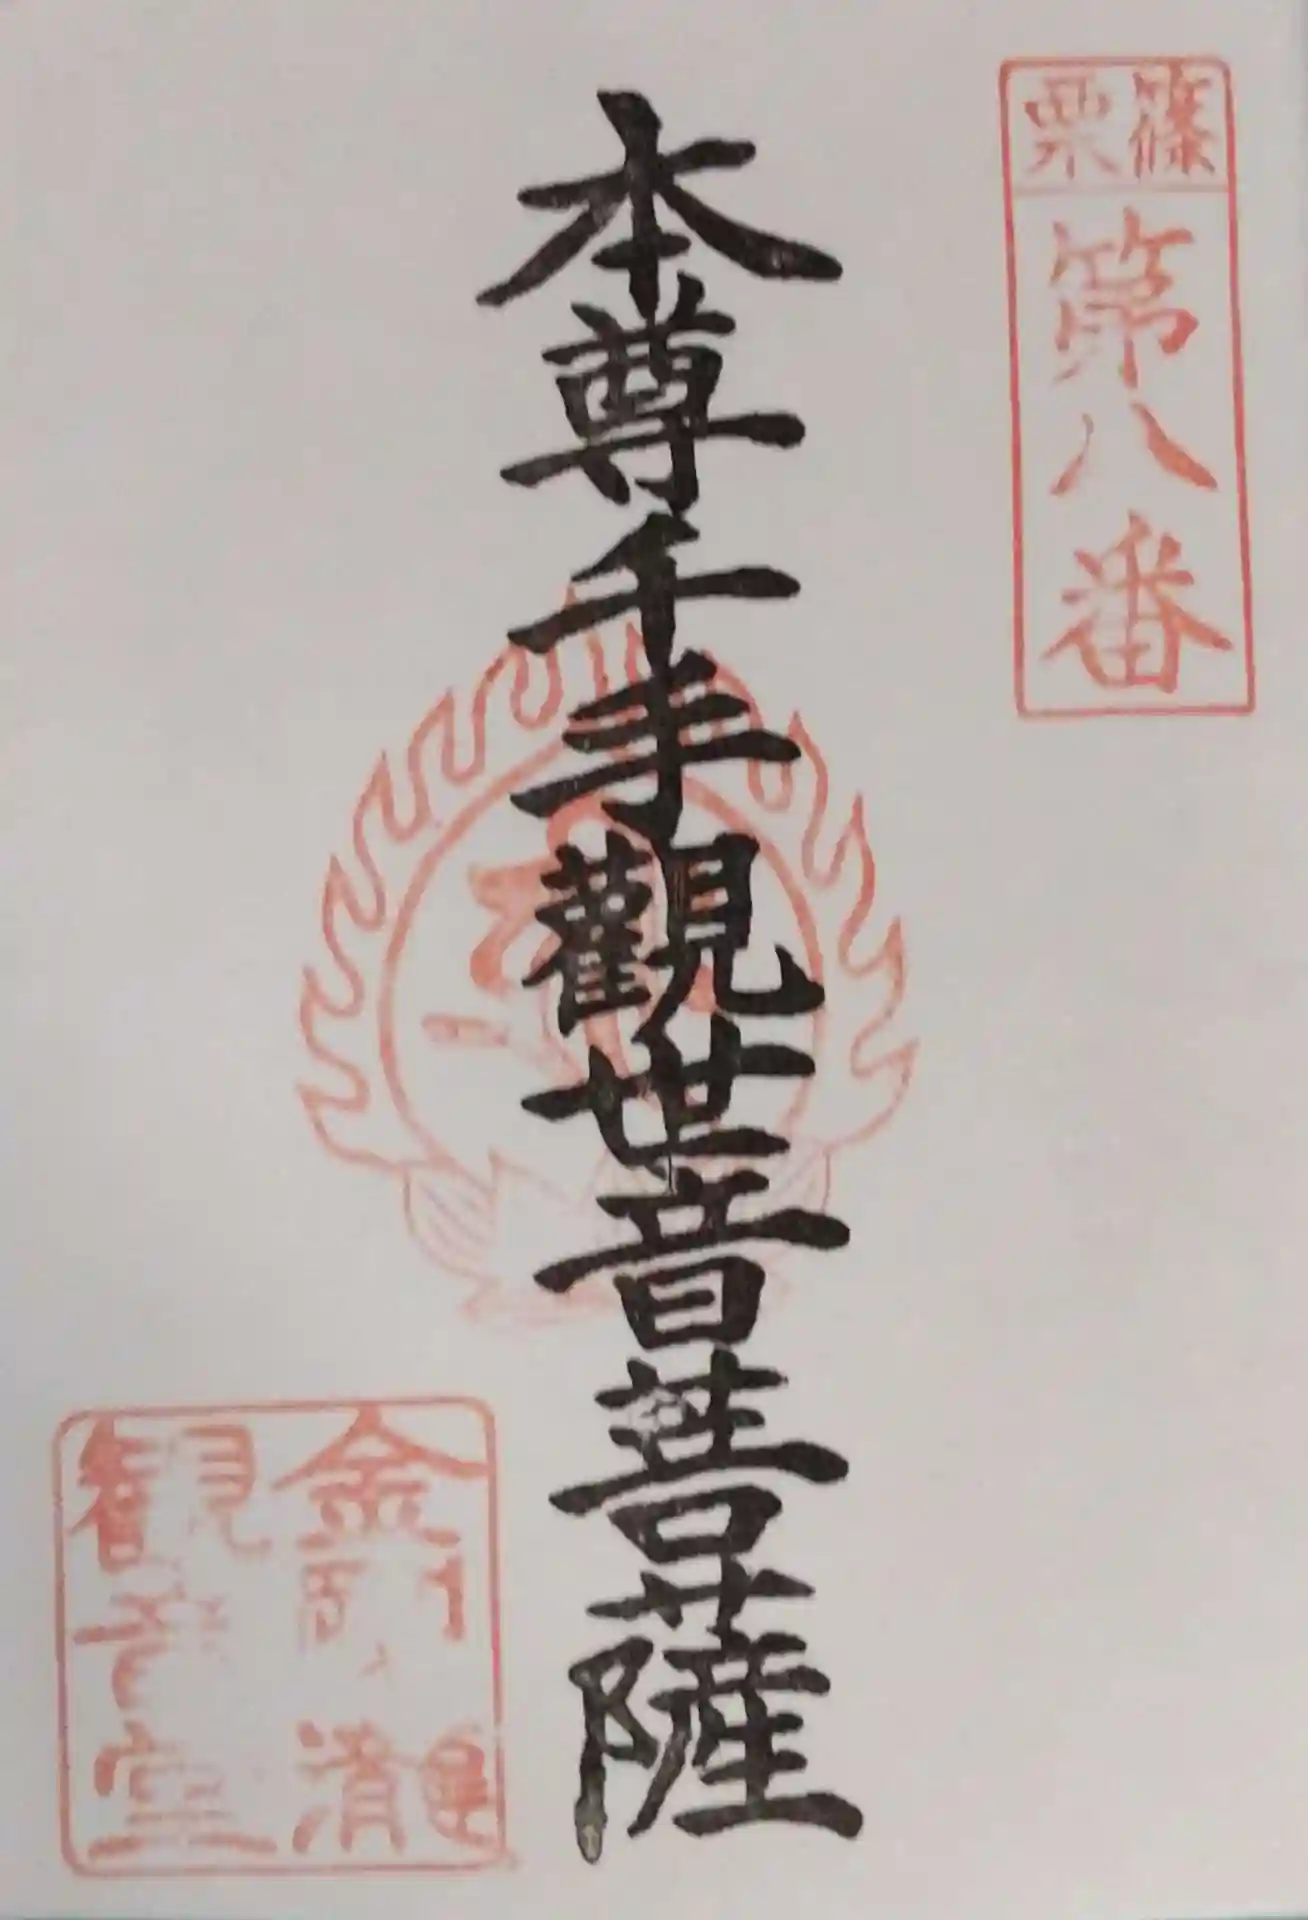 篠栗
第八番
本尊千手觀世音菩薩
金剛の瀧
観音堂